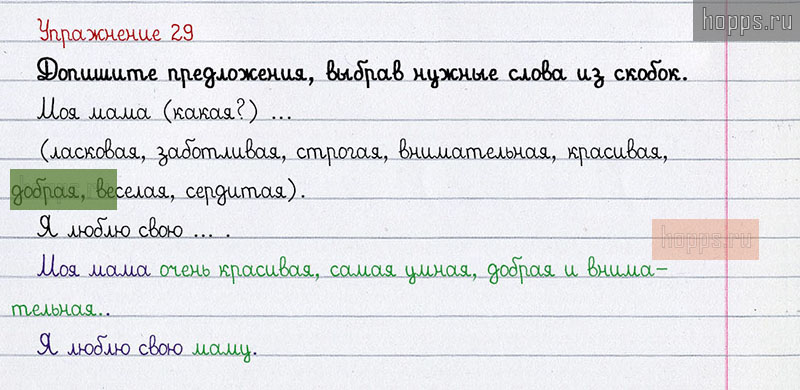 hopps.ru
Упражнение 29
Допишите предложения, выбрав нужные слова из скобок.
Моя мама (какая?) ...
(ласковая, заботливая, строгая, внимательная, красивая,
добрая, веселая, сердитая).
Я люблю свою ... .
hopps.ru
Моя мама очень красивая, самая умная, добрая и внима-
тельная..
Я люблю свою маму.